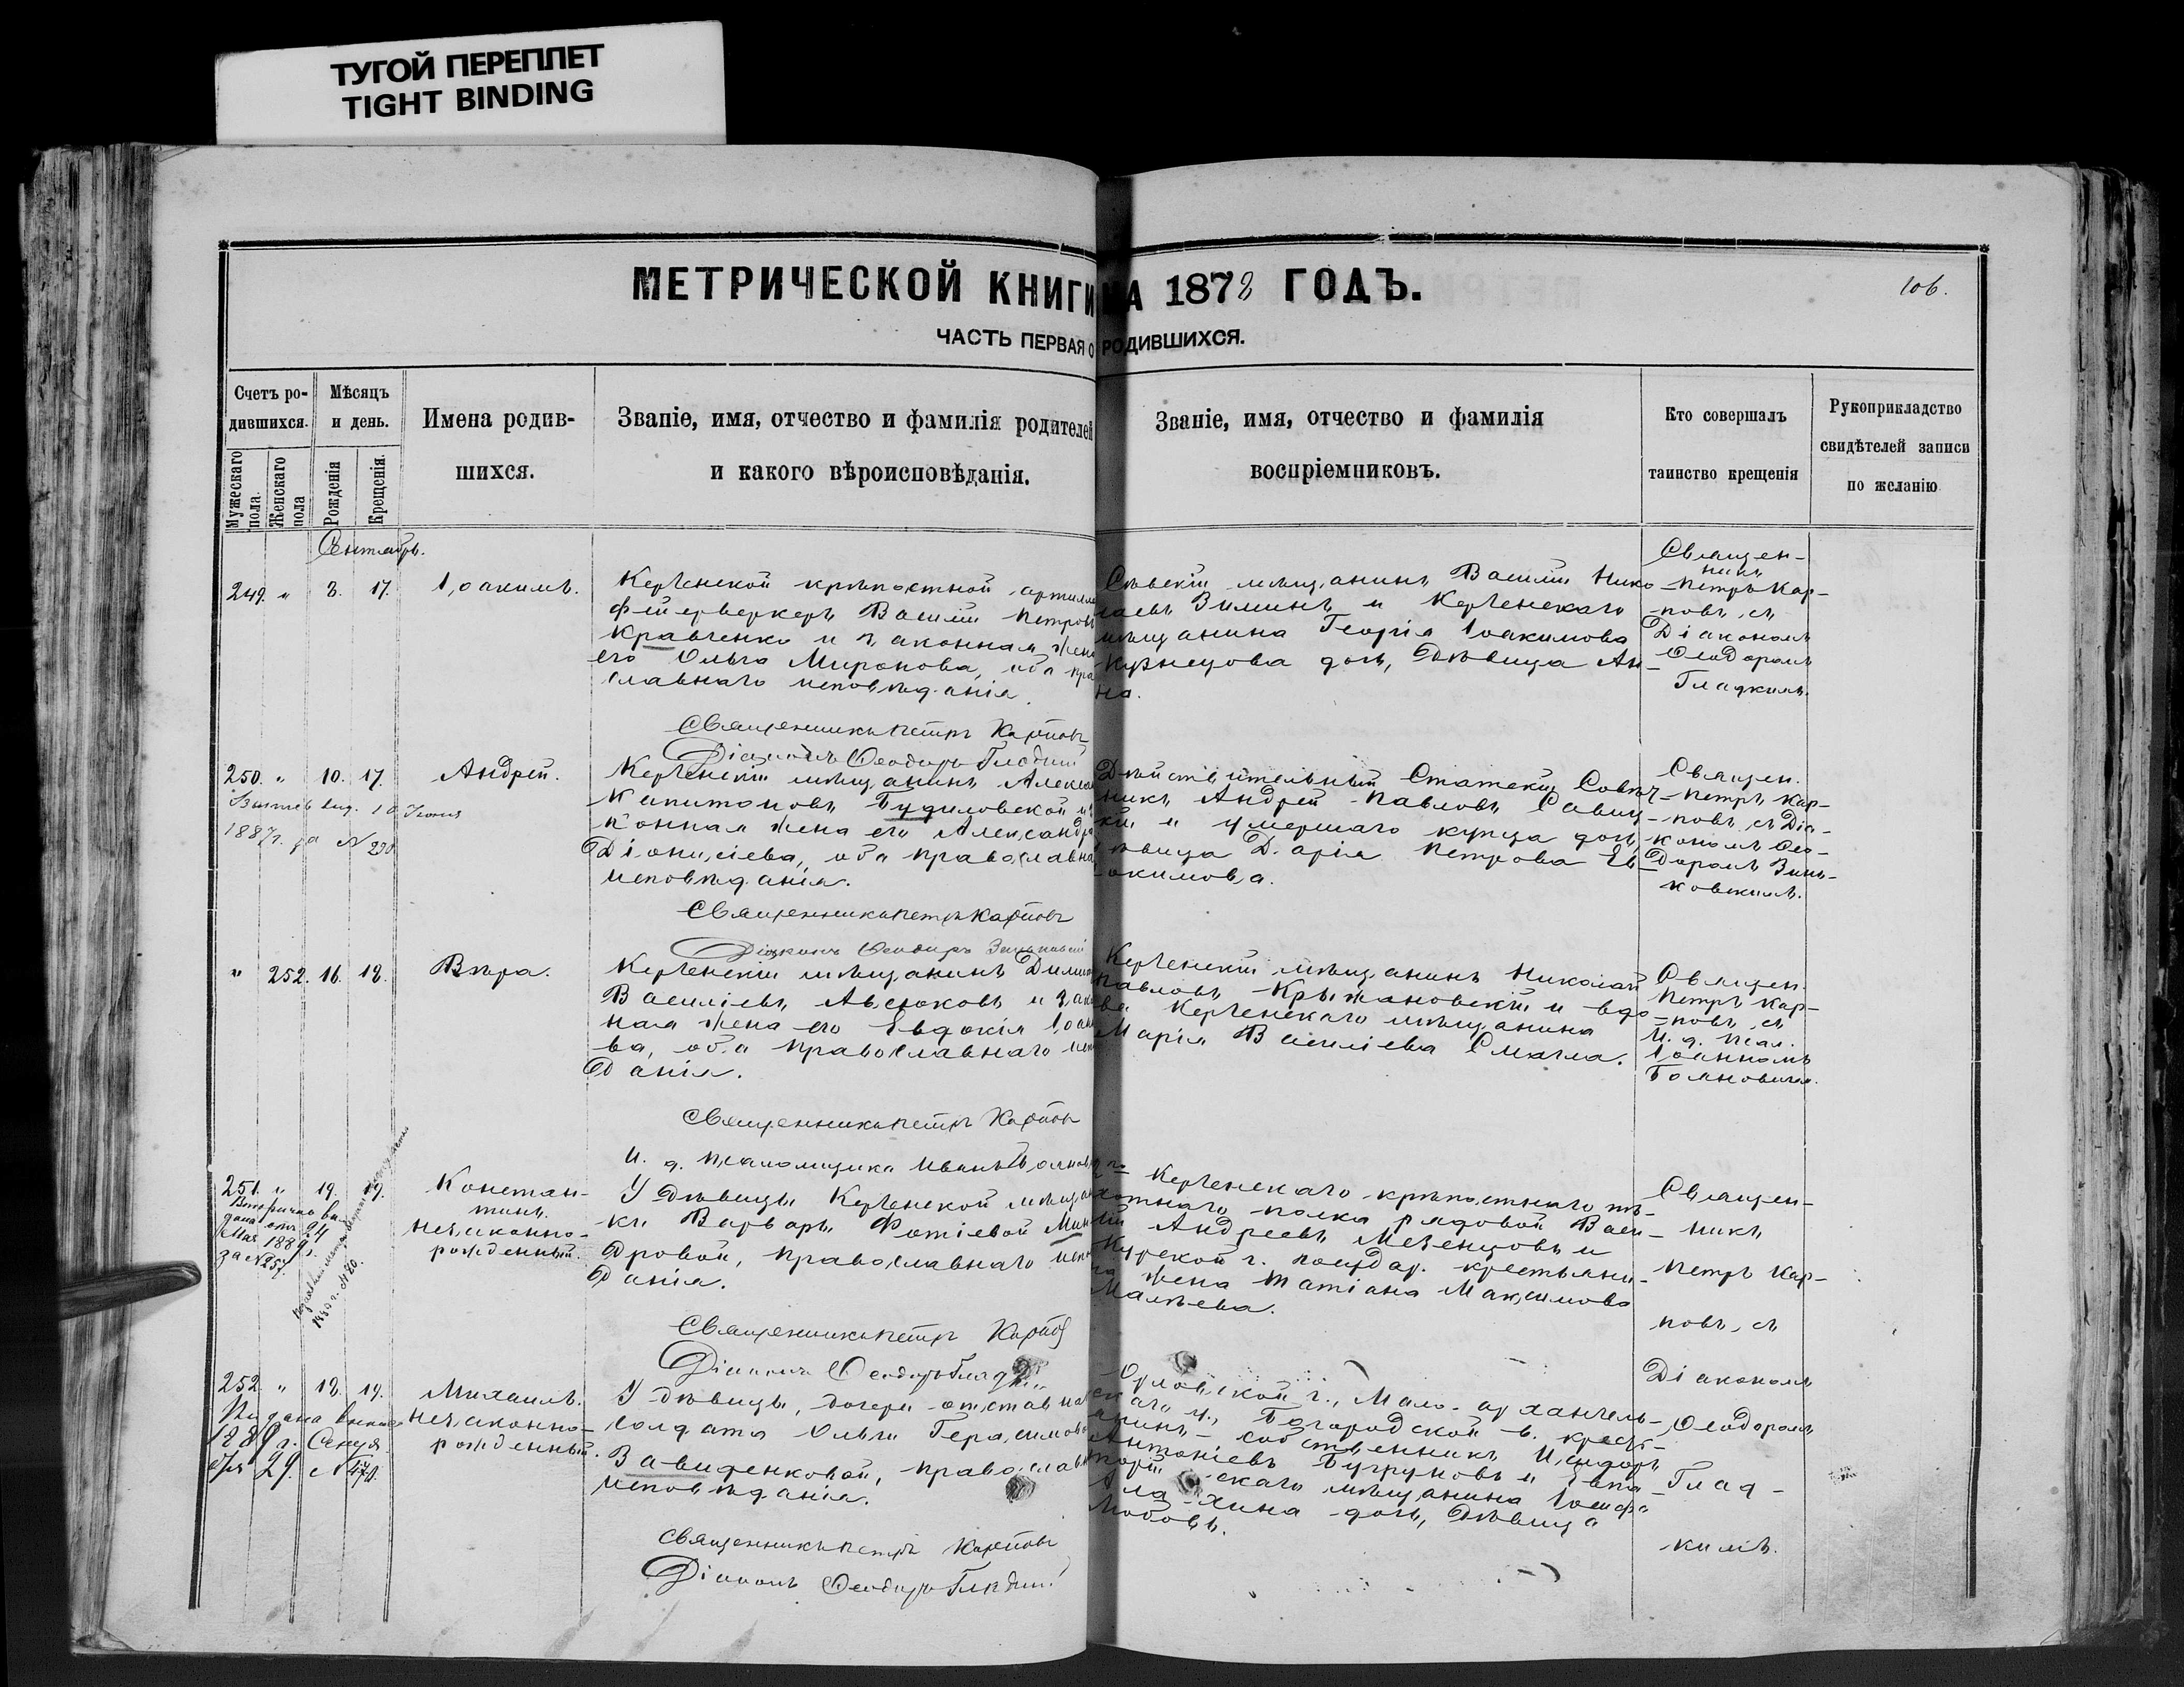 ТУГОЙ ПЕРЕПЛЕТ
TIGHT BINDING
МЕТРИЧЕСКОЙ КНИГИ НА 1878 ГОДЪ.
106.
ЧАСТЬ ПЕРВАЯ О РОДИВШИХСЯ.
Счетъ ро-
дившихся.
Мужескаго
пола.
Женскаго
пола
Мѣсяцъ
и день.
Рожденія
Крещенія.
Имена родив-
шихся.
Званіе, имя, отчество и фамилія родителей
и какого вѣроисповѣданія.
Званіе, имя, отчество и фамилія
воспріемниковъ.
Кто совершалъ
таинство крещенія
Рукоприкладство
свидѣтелей записи
по желанію
Сентябрь.
249. " 8. 17.
Іоакимъ.
Керченской крѣпостной артилле
фейерверкеръ Василій Петровъ
Кравченко и законная жена
его Ольга Миронова, оба пра
славнаго исповѣданія.
Священникъ Петръ Карповъ
Діаконъ Ѳеодоръ Гладкій
Сѣвскій мѣщанинъ Василій Нико-
лаевъ Зиминъ и Керченскаго
мѣщанина Георгія Іоакимова
Кузнецова дочь, дѣвица Ан-
на.
Священ-
никъ
Петръ Кар-
повъ съ
Діакономъ
Ѳеодоромъ
Гладкимъ.
250. " 10. 17.
1887г. за N 290
Андрей.
Керченскій мѣщанинъ Алексѣй
Капитоновъ Будиловской и за
конная жена его Александра
Діонисіева, оба православна
исповѣданія.
Священникъ Петръ Карповъ
Діаконъ Ѳеодоръ Зиньковскій
Дѣйствительный Статскій Совѣт-
никъ Андрей Павловъ Савиц-
кій и умершаго купца дочь,
дѣвица Дарія Петрова Ев-
докимова.
Священ.
Петръ Кар-
повъ съ Діа-
кономъ Ѳео-
доромъ Зинь-
ковскимъ.
" 252. 16. 18.
Вѣра.
Керченскій мѣщанинъ Димит
Василіевъ Авсюковъ и зако
ная жена его Евдокія Іоан
ва, оба православнаго испо
данія.
Священникъ Петръ Карповъ
И. д. псаломщика Иванъ Бояновичъ
Керченскій мѣщанинъ Николай
Павловъ Крыжановскій и вдо-
ва Керченскаго мѣщанина
Марія Василіева Смагла.
Священ.
Петръ Кар-
повъ съ
И. д. псал.
Іоанномъ
Бояновичем.
251. " 19. 19.
Вторично вы-
дана
Мая 1889г.
за N 257.
Констан-
тинъ.
незаконно-
рожденный.
У дѣвицы Керченской мѣщан
ки Варвары Фотіевой
дровой, православнаго испо
данія.
Священникъ Петръ Карповъ
Діаконъ Ѳеодоръ Гладкій
Керченскаго крѣпостнаго пѣ-
хотнаго полка рядовой Васи-
лій Андреевъ Мезенцовъ и
Курской г. государ. крестьяни-
на жена Татіана Максимова
Малѣева.
Священ-
никъ
Петръ Кар-
повъ съ
Діакономъ
Ѳеодоромъ
Глад-
кимъ.
252 " 18. 19.
1889 г. Сентя
бря 29. N 470.
Михаилъ.
незаконно-
рожденный.
У дѣвицы, дочери отставна
солдата Ольги Герасимовой
Вавиленковой, православ
исповѣданія.
Священникъ Петръ Карповъ
Діаконъ Ѳеодоръ Гладкій
Орловской г., Мало-архангель-
скаго у., Богородской в. крест-
янинъ-собственникъ Исидоръ
Антоніевъ Бугруновъ и Евпа-
торійскаго мѣщанина Іосифа
дочь, дѣвица
Любовь.